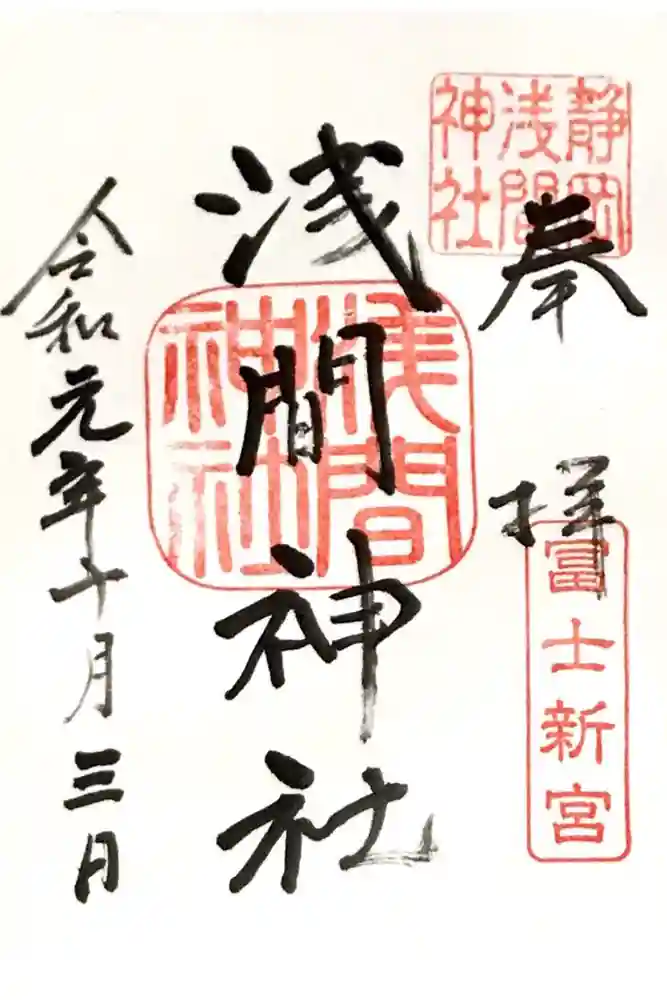 静岡
浅間
神社
奉拝
冨士新宮
浅間神社
浅間
神社
令和元年十月三日